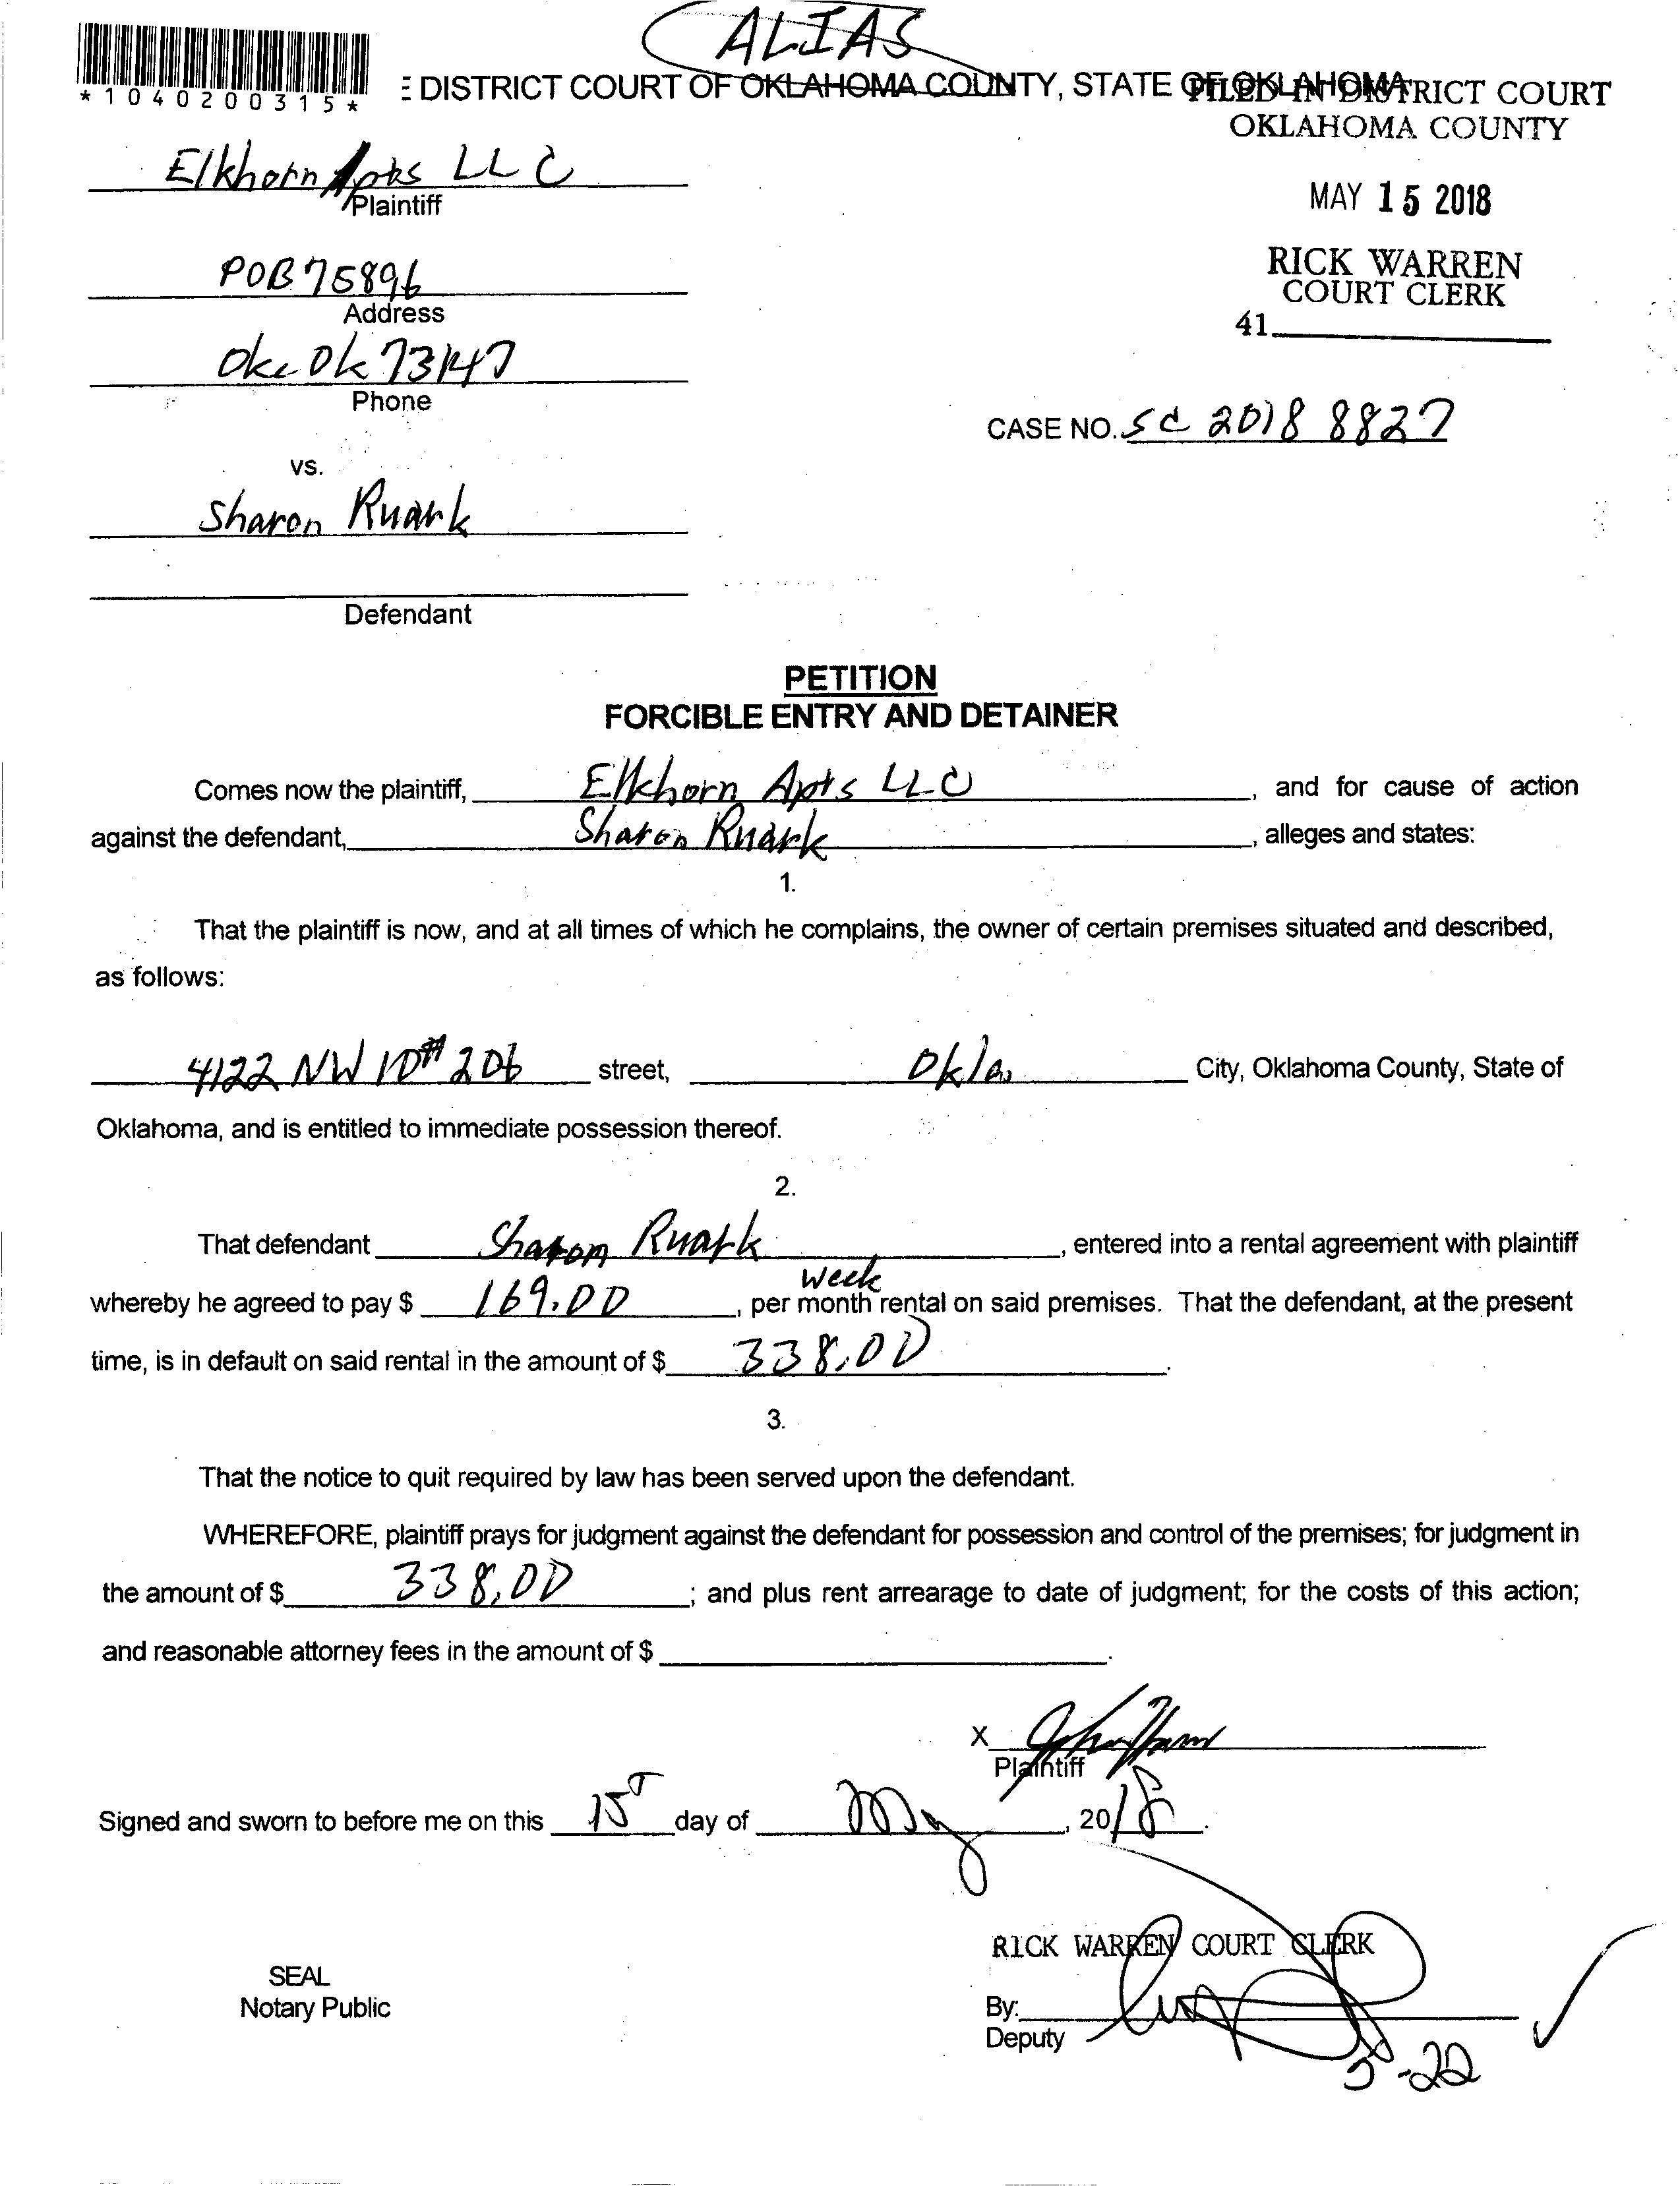 ALIAS
*1040200315*
E DISTRICT COURT OF OKLAHOMA COUNTY, STATE OF OKLAHOMA
FILED IN DISTRICT COURT
OKLAHOMA COUNTY
Elkhorn Apts LLC
Plaintiff
MAY 15 2018
POB 75896
Address
RICK WARREN
COURT CLERK
41
Okc Ok 73147
Phone
CASE NO. SC 2018 8827
vs.
Sharon Ruark
Defendant
PETITION
FORCIBLE ENTRY AND DETAINER
Comes now the plaintiff, Elkhorn Apts LLC, and for cause of action
against the defendant, Sharon Ruark, alleges and states:
1.
That the plaintiff is now, and at all times of which he complains, the owner of certain premises situated and described,
as follows:
4122 NW 10 # 206 street, Okla. City, Oklahoma County, State of
Oklahoma, and is entitled to immediate possession thereof.
2.
That defendant Sharon Ruark, entered into a rental agreement with plaintiff
week
whereby he agreed to pay $ 169.00, per month rental on said premises. That the defendant, at the present
time, is in default on said rental in the amount of $ 338.00.
3.
That the notice to quit required by law has been served upon the defendant.
WHEREFORE, plaintiff prays for judgment against the defendant for possession and control of the premises; for judgment in
the amount of $ 338.00; and plus rent arrearage to date of judgment; for the costs of this action;
and reasonable attorney fees in the amount of $ .
X
Plaintiff
Signed and sworn to before me on this 15 day of May, 2018.
RICK WARREN COURT CLERK
SEAL
Notary Public
By:
Deputy
5-22